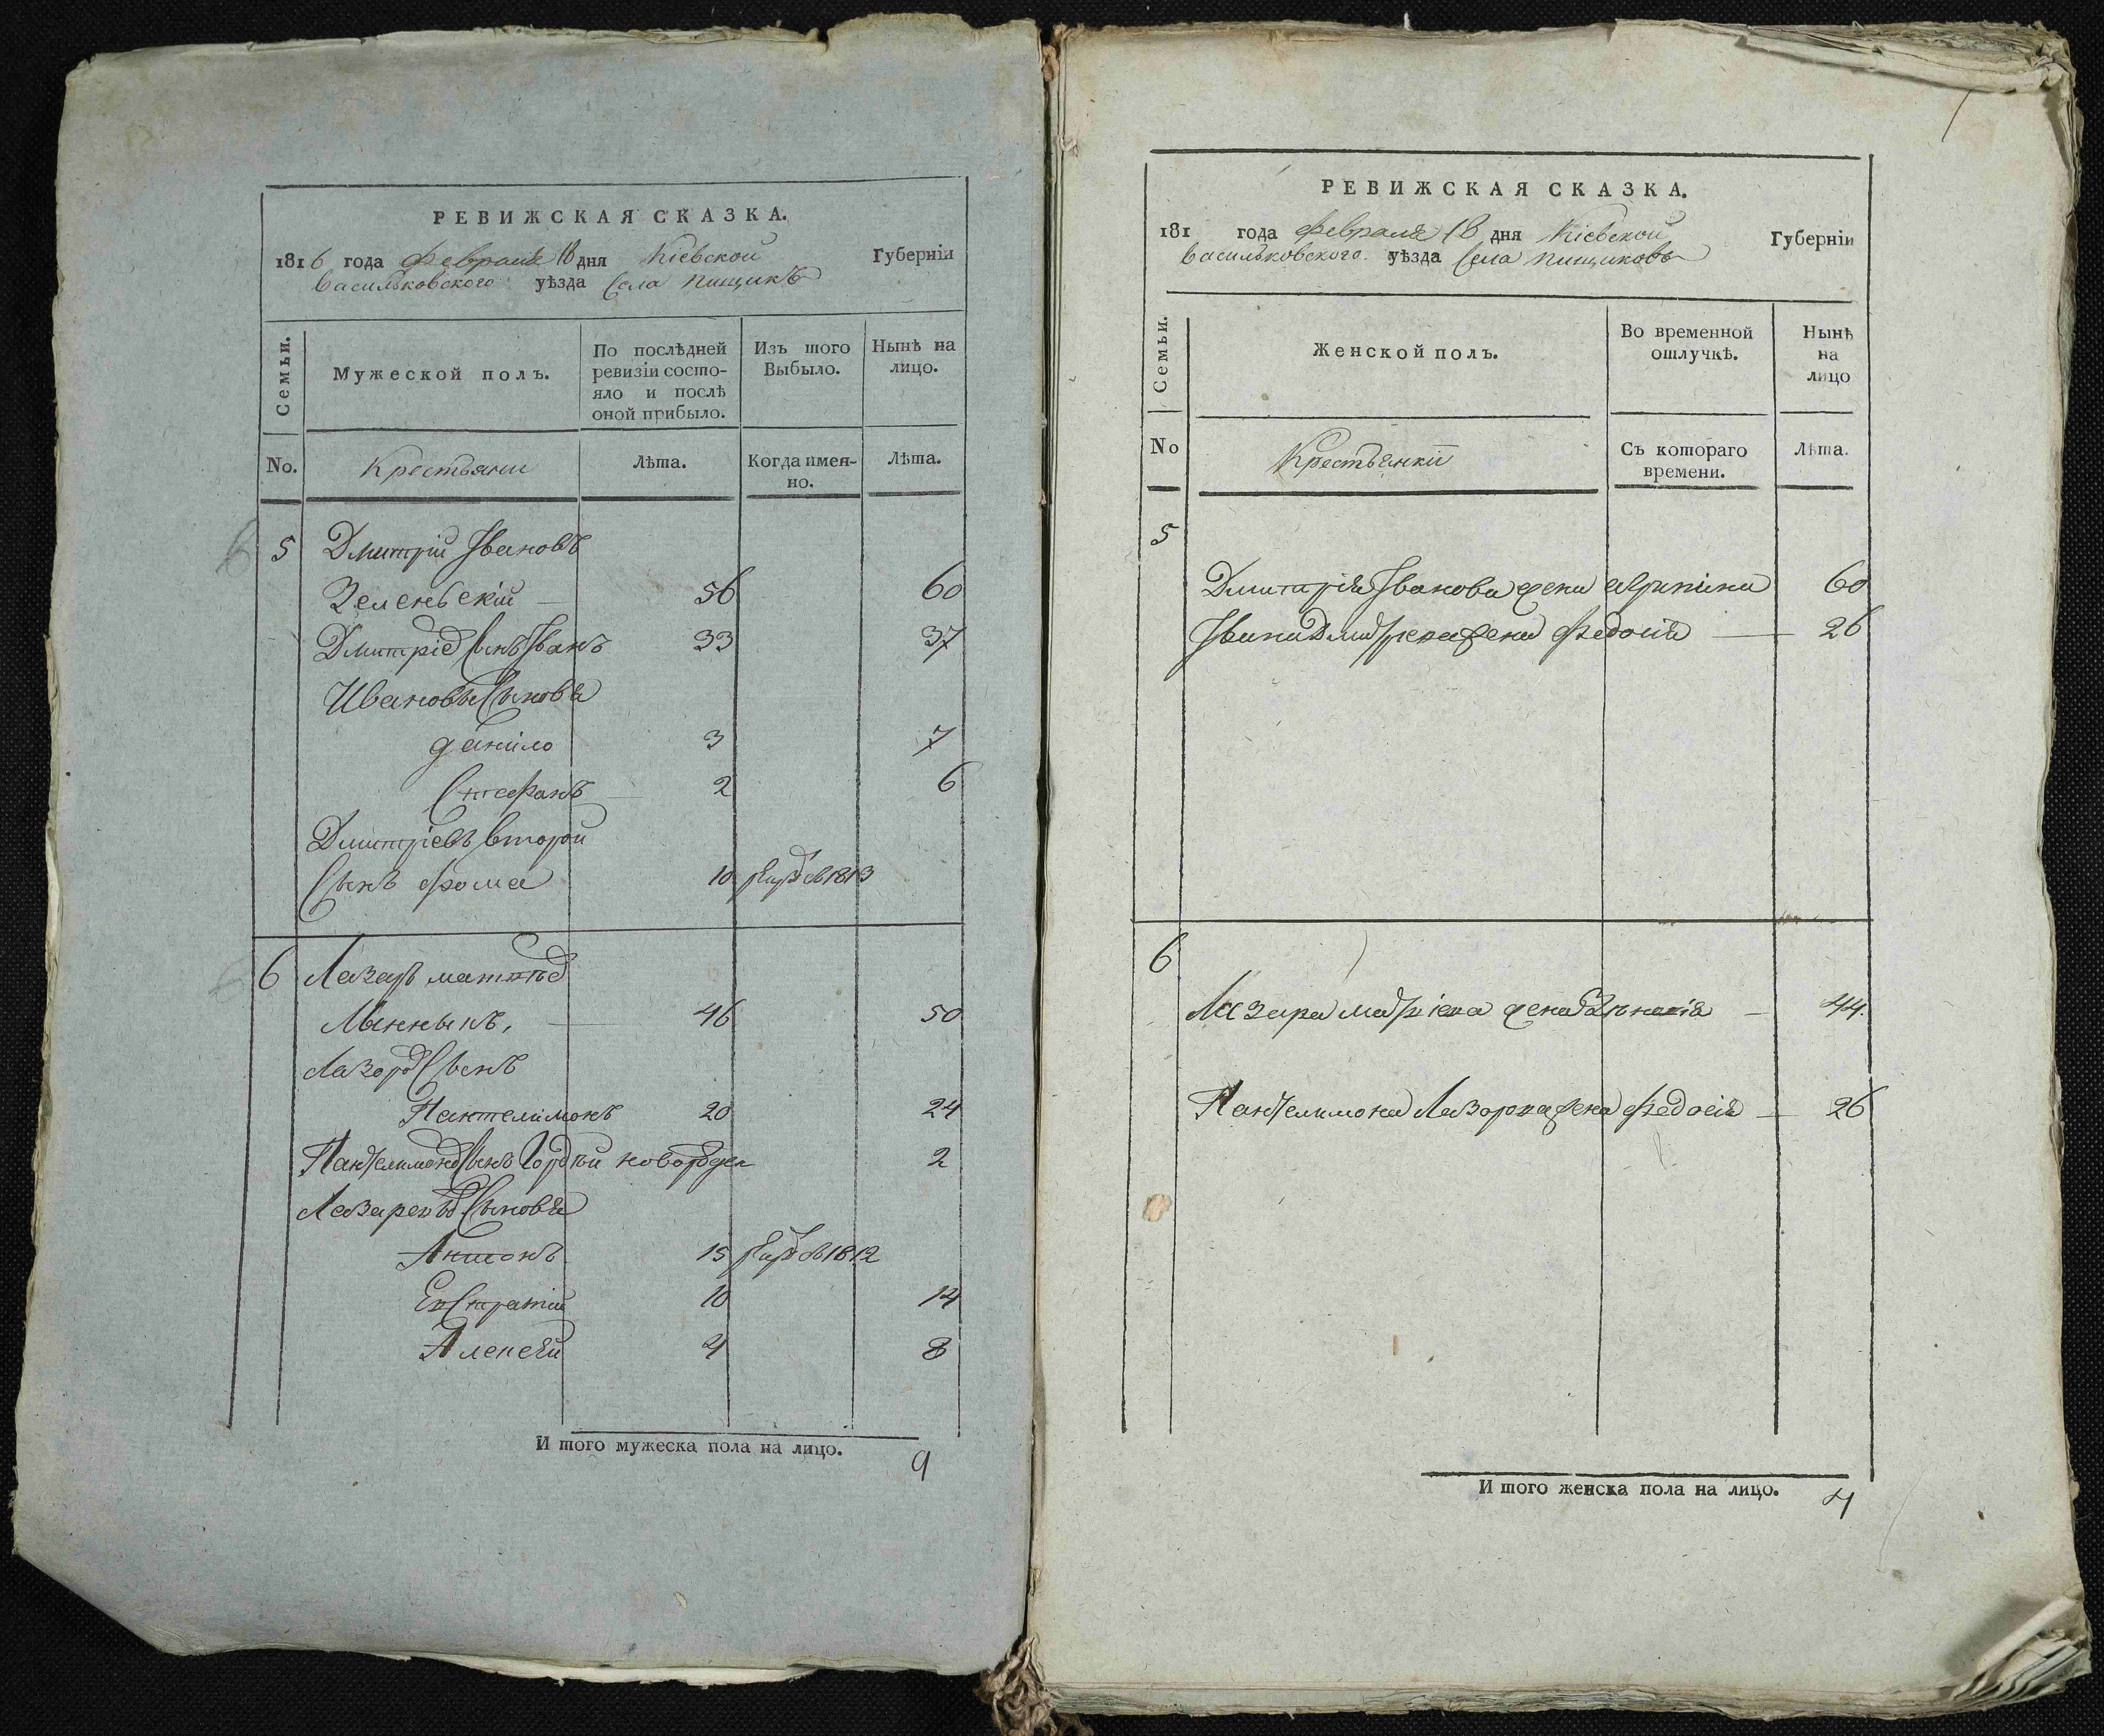 РЕВИЖСКАЯ СКАЗКА.
1816 года Февраля 18 дня Кіевской Губерніи
Васильковского уѣзда Села Пищикъ
Семьи.
Мужеской полъ.
По послѣдней ревизіи состояло и послѣ оной прибыло.
Изъ того Выбыло.
Нынѣ на лицо.
No.
Крестьяни
Лѣта.
Когда имен-
но.
Лѣта.
5 Дмитрій Івановъ
Зеленьскій 56 60
Дмитрія Сынъ Іванъ 33 37
Ивановы Сыновья
Данило 3 7
Стефанъ 2 6
Дмитріевъ второй
Сынъ Фома 10 1813
6 Лазаръ
46 50
Лазор Сынъ
Пантелимонъ 20 24
Пантелимон Сынъ Гордѣй новорожден 2
Сыновья
Антонъ 15 1812
Евстратій 10 14
Алексѣй 4 8
И того мужеска пола на лицо. 9
РЕВИЖСКАЯ СКАЗКА.
181 года Февраля 18 дня Кіевской Губерніи
Васильковского уѣзда Села Пищиковъ
Семьи.
Женской полъ.
Во временной
отлучкѣ.
Нынѣ
на
лицо
No
Крестьянки
Съ котораго
времени.
Лѣта.
5
Дмитрія Іванова жена 60
Івана жена Федосія 26
6
Лазара жена 44.
Пантелимона жена Федосія 26
И того женска пола на лицо. 4